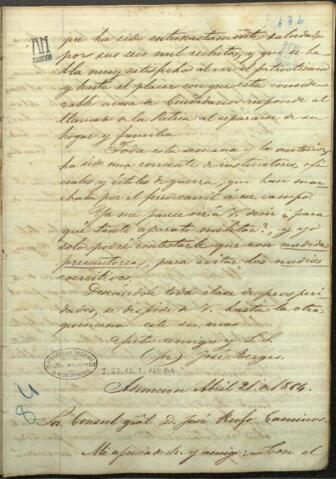 186
AN
ASUNCION
que ha sido entusiastamente saludado
por sus seis mil reclutas, y que se ha-
lla muy satisfecho al ver el patriotismo
y hasta el placer con que esta conside-
rable masa de Ciudadanos responde al
llamado de la Patria al separarse de su
hogar y familia.
Toda esta semana y la anterior
ha sido una corriente de instructores, ofi-
ciales y útiles de guerra, que han mar-
chado por el ferro-carril a ese campo
Ya me parece oir a V. decir ¿para
qué tanto aparato militar? y yo
solo podré contestarle que son medidas
precautorias, para evitar los medios
coercitivos
Deseándole toda clase de prosperi-
dades, se despide de V. hasta la otra
quincena este su mas
afecto amigo y S. S.
(fr) José Berges.
I.22.12.1. Nº 84.
Asuncion Abril 21 de 1864.
Sor. Consul gral. D. José Rufo Caminos.
Mi apreciado Sr. y amigo: Con el